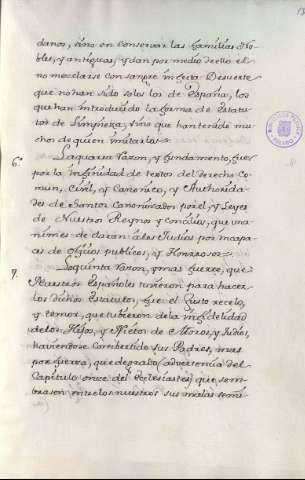 danos, sino en conservar las familias No-
bles, y antiguas, y dan por medio de ello el
no mezclarse con sangre infecta. Desuerte
que no han sido solos los de España, los
que han introducido la forma de Estatu-
tos de Limpieza, sino que han tenido mu-
chos de quien imitarlos
6. La quarta razon, y fundamento, fue
por la infinidad de textos del derecho Co-
mun, Civil, y Canonico, y Authorida-
des de Santos Canonizados por el, y Leyes
de Nuestro Reyno y concilios, que una-
nimes declaran á los Judios por incapa-
ces de Oficios publicos, y Honrrosos
7. La quinta razon, y mas fuerte, que
Nuestros Españoles tuvieron para hacer
los dichos Estatutos, fue el Justo recelo,
y temor, que tubieron de la infidelidad
de los Hijos, y Nietos de Moros, y Judios,
haviendose combertido sus Padres, mas
por fuerza, que de grado (advertencia del
Capitulo once del Eclesiastes) que sem-
brasen entre los nuestros sus malas semi-